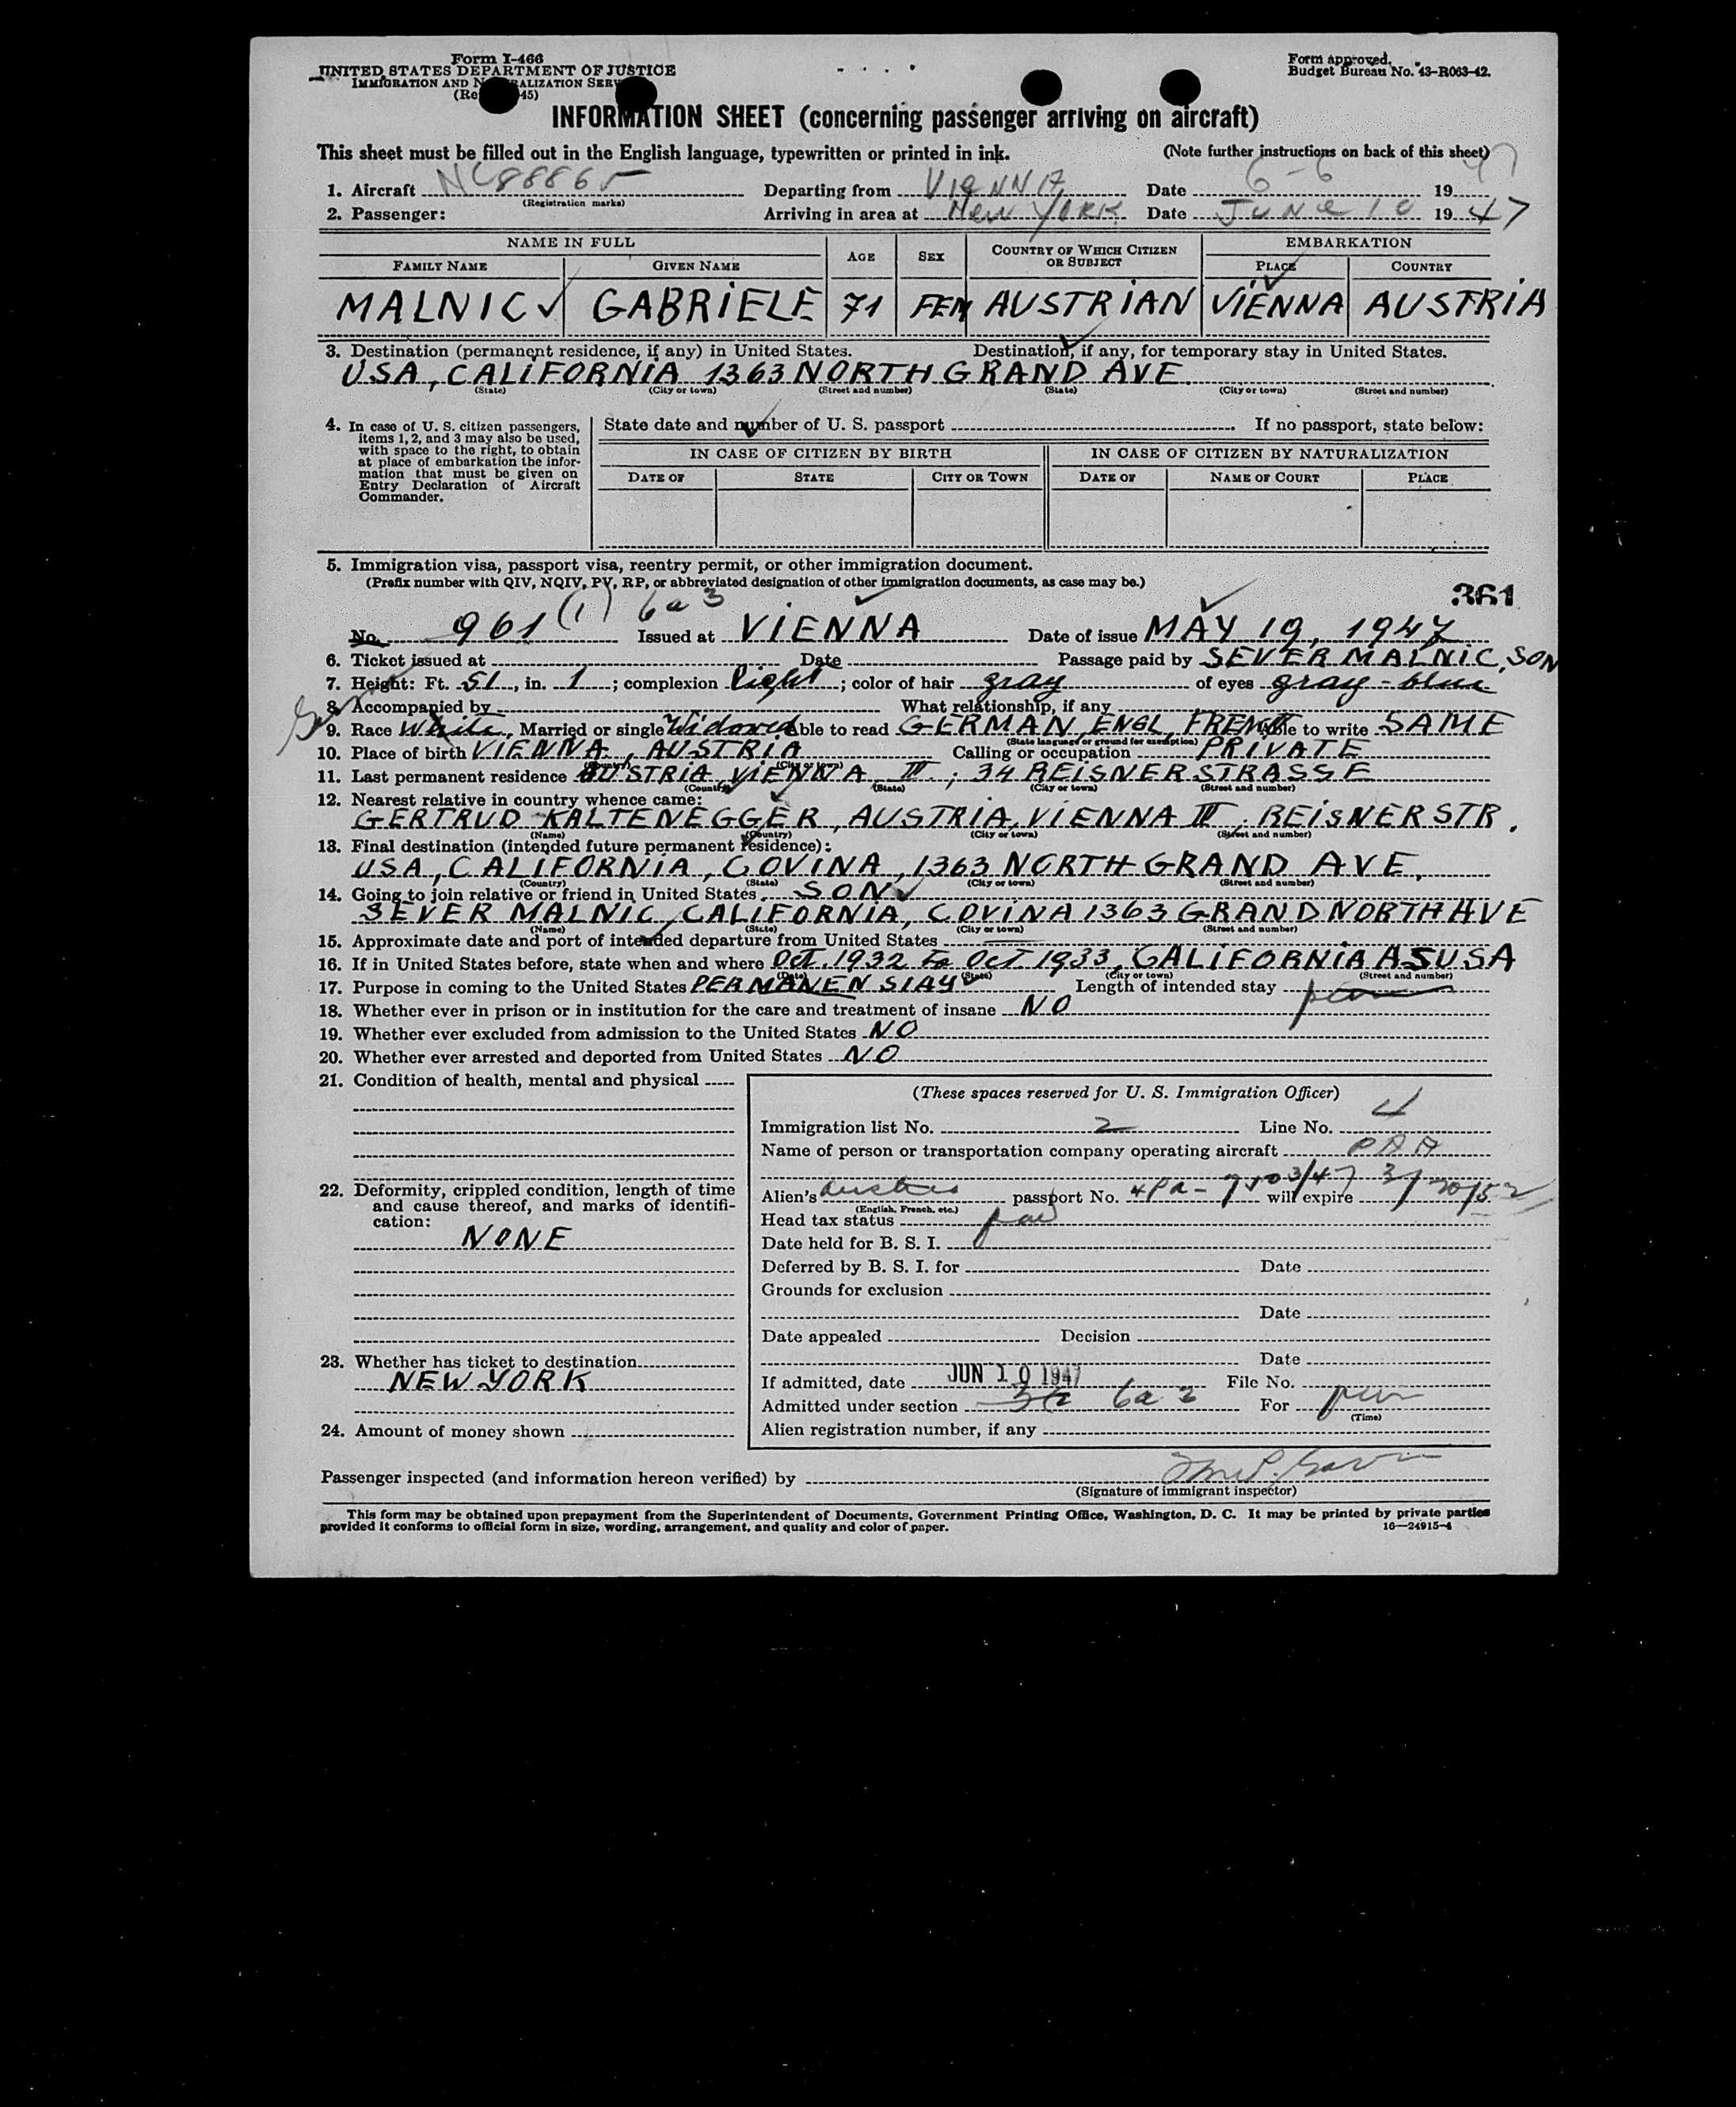 Form I-466
UNITED STATES DEPARTMENT OF JUSTICE
IMMIGRATION AND NATURALIZATION SERV
(Re 45)
Form approved.
Budget Bureau No. 43-R063-42.
INFORMATION SHEET (concerning passenger arriving on aircraft)
This sheet must be filled out in the English language, typewritten or printed in ink. (Note further instructions on back of this sheet)
1. Aircraft NC88865 Departing from VIENNA Date 6-6 1947
(Registration marks)
2. Passenger: Arriving in area at New YORK Date JUNE 10 1947
NAME IN FULL AGE SEX COUNTRY OF WHICH CITIZEN OR SUBJECT EMBARKATION
FAMILY NAME GIVEN NAME PLACE COUNTRY
MALNIC GABRIELE 71 FEM AUSTRIAN VIENNA AUSTRIA
3. Destination (permanent residence, if any) in United States. Destination, if any, for temporary stay in United States.
USA, CALIFORNIA 1363 NORTH GRAND AVE.
(State) (City or town) (Street and number) (State) (City or town) (Street and number)
4. In case of U. S. citizen passengers, items 1, 2, and 3 may also be used, with space to the right, to obtain at place of embarkation the information that must be given on Entry Declaration of Aircraft Commander.
State date and number of U. S. passport If no passport, state below:
IN CASE OF CITIZEN BY BIRTH IN CASE OF CITIZEN BY NATURALIZATION
DATE OF STATE CITY OR TOWN DATE OF NAME OF COURT PLACE
5. Immigration visa, passport visa, reentry permit, or other immigration document.
(Prefix number with QIV, NQIV, PV, RP, or abbreviated designation of other immigration documents, as case may be.)
361
No. 961 (1) 6a3 Issued at VIENNA Date of issue MAY 19, 1947
6. Ticket issued at Date Passage paid by SEVER MALNIC, SON
7. Height: Ft. 51, in. 1; complexion light; color of hair gray of eyes gray-blue
8. Accompanied by What relationship, if any
9. Race White, Married or single Widowed Able to read GERMAN, ENGL, FRENCH Able to write SAME
(State language or ground for exemption)
10. Place of birth VIENNA, AUSTRIA Calling or occupation PRIVATE
(Country) (City or town)
11. Last permanent residence AUSTRIA, VIENNA III; 34 REISNERSTRASSE
(Country) (State) (City or town) (Street and number)
12. Nearest relative in country whence came:
GERTRUD KALTENEGGER, AUSTRIA, VIENNA III, REISNERSTR.
(Name) (Country) (City or town) (Street and number)
13. Final destination (intended future permanent residence):
USA, CALIFORNIA, COVINA, 1363 NORTH GRAND AVE.
(Country) (State) (City or town) (Street and number)
14. Going to join relative or friend in United States SON
SEVER MALNIC, CALIFORNIA, COVINA 1363 GRAND NORTH AVE
(Name) (State) (City or town) (Street and number)
15. Approximate date and port of intended departure from United States
16. If in United States before, state when and where Oct. 1932 to Oct. 1933, CALIFORNIA ASUSA
(Date) (State) (City or town) (Street and number)
17. Purpose in coming to the United States PERMANEN STAY Length of intended stay
18. Whether ever in prison or in institution for the care and treatment of insane NO
19. Whether ever excluded from admission to the United States NO
20. Whether ever arrested and deported from United States NO
21. Condition of health, mental and physical
(These spaces reserved for U. S. Immigration Officer)
Immigration list No. 2 Line No. 4
Name of person or transportation company operating aircraft PAA
22. Deformity, crippled condition, length of time and cause thereof, and marks of identification:
NONE
Alien's passport No. will expire
(English, French, etc.)
Head tax status
Date held for B. S. I.
Deferred by B. S. I. for Date
Grounds for exclusion
Date
Date appealed Decision
Date
23. Whether has ticket to destination
NEW YORK
If admitted, date JUN 10 1947 File No.
Admitted under section 6a 3 For per
(Time)
24. Amount of money shown
Alien registration number, if any
Passenger inspected (and information hereon verified) by
(Signature of immigrant inspector)
This form may be obtained upon prepayment from the Superintendent of Documents, Government Printing Office, Washington, D. C. It may be printed by private parties
provided it conforms to official form in size, wording, arrangement, and quality and color of paper. 16—24915-4